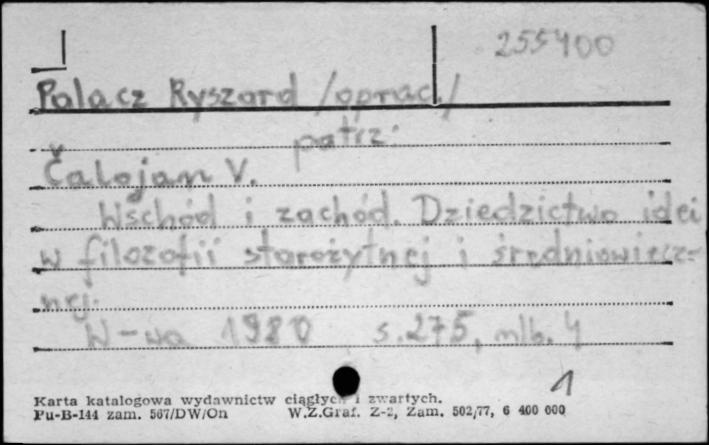 255400
Palacz Ryszard /oprac./
patrz:
Čalojan V.
Wschód i zachód. Dziedzictwo idei
w filozofii starożytnej i średniowiecz-
nej.
W-wa 1980 s. 275, nlb. 4
1
Karta katalogowa wydawnictw ciągłych i zwartych.
Pu-B-144 zam. 567/DW/On W.Z.Graf. Z-2, Zam. 502/77, 6 400 000